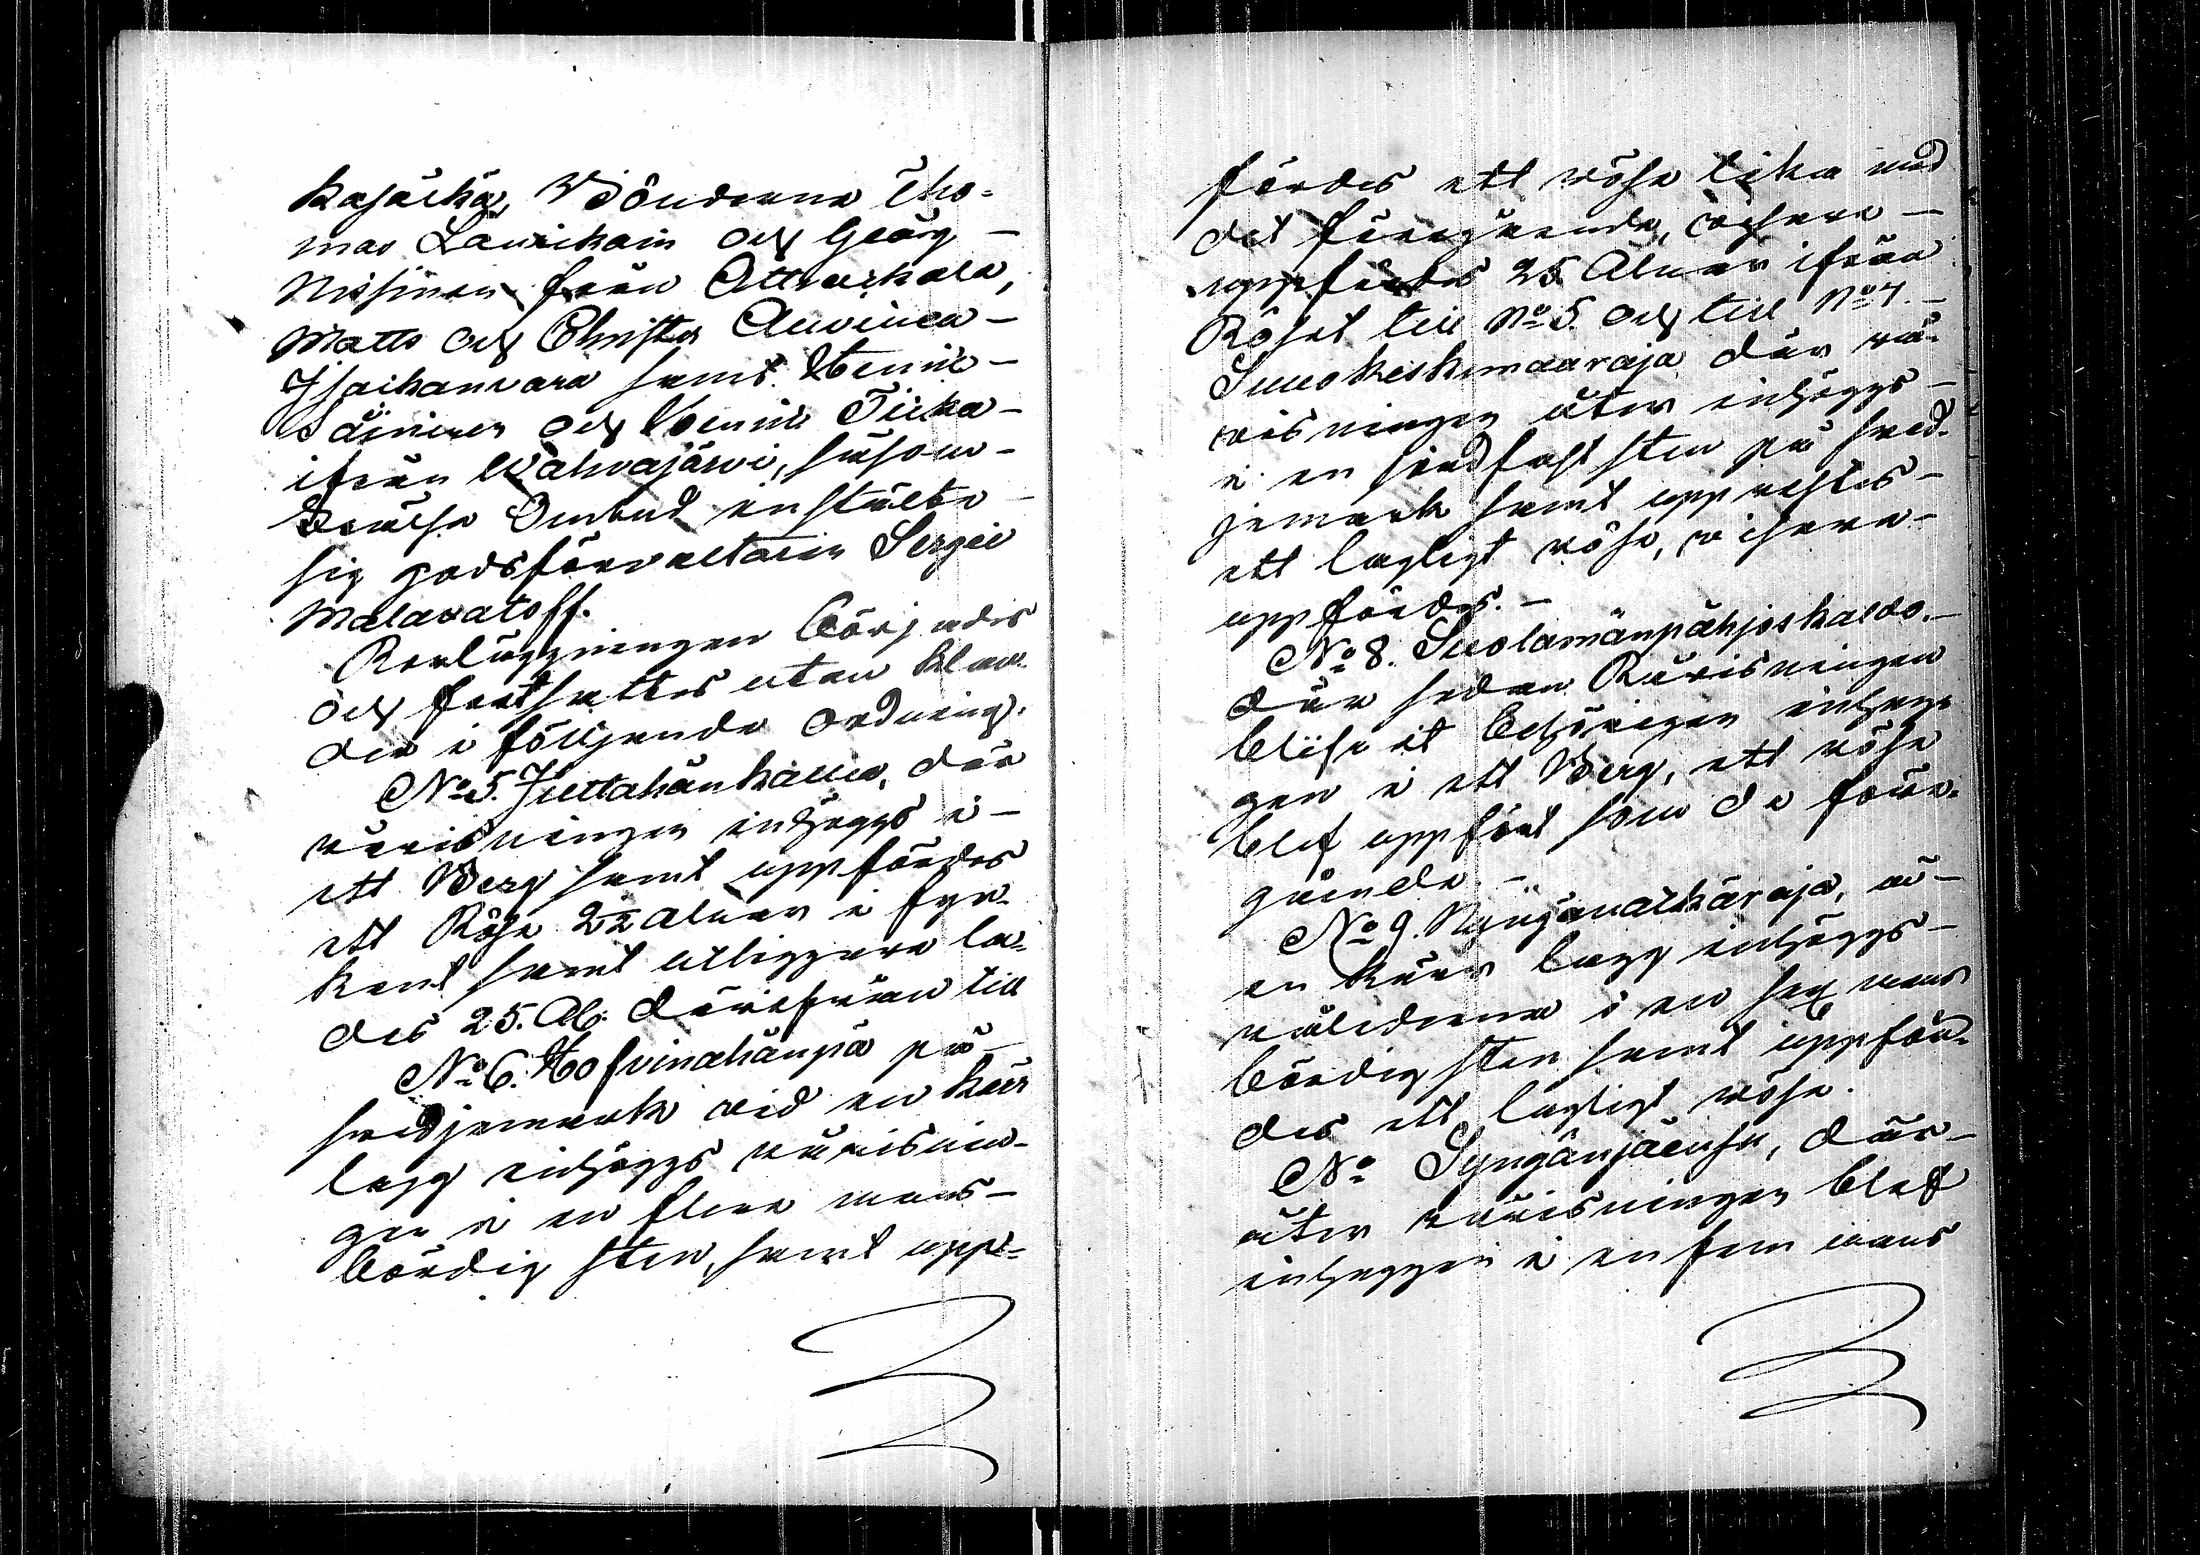 Kajälkä, Bönderna Tho-
mas Laurikain och Georg
Nissinen från Ottraikala,
Matts och Christer Auvinen
Isaikanvara samt Henrik
Säininen och Henrik Tiika
ifrån Wahvajärvi, såsom
Ombud instälte
sig godsförvaltaren Sergei
Malavatoff.
Rouläggningen börjades
och fortsattes utan klan-
der i följande ordning.
No 5. Juttahänkallio, där
råvisningen inhöggs i
ett Berg samt uppfördes
ett Röse 2 1/2 alnar i fyr-
kant samt utliggare la-
des 25. Al. därifrån till
No 6. Hosvinahänpä på
svedjemark vid en kärr
lagg inhöggs råvisnin-
gen i en flera mans-
bördig sten, samt upp-
fördes ett röse lika med
det föregående, visare
uppfördes 25 Alnar ifrån
Röset till No 5. och till No 7.
Suuokeskimaaraja där rå-
visningen åter inhöggs
i en jordfast sten på sved-
jemark samt upprestes
ett lagligt röse, visare
uppfördes.
No 8. Suolamänpähjoskaldo.
där sedan Råvisningen
blifvit behörigen inhug-
gen i ett Berg, ett röse
blef uppfört som de före-
gående.
No 9. Nyrjänalkäraja, vid
en kärr lagg inhöggs
rålederna i en sex mans
bördig sten samt uppför-
des ett lagligt röse.
No Syngänjäensu, där
åter råvisningen blef
inhuggen i en fem mans